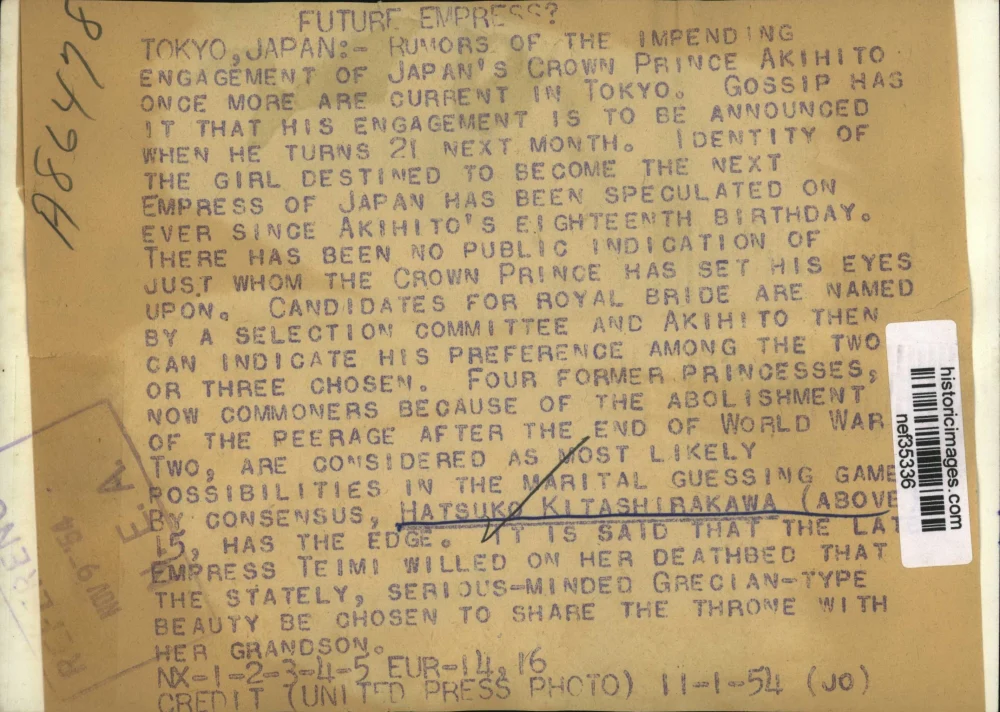 FUTURE EMPRESS?
TOKYO, JAPAN:- RUMORS OF THE IMPENDING
ENGAGEMENT OF JAPAN'S CROWN PRINCE AKIHITO
ONCE MORE ARE CURRENT IN TOKYO. GOSSIP HAS
IT THAT HIS ENGAGEMENT IS TO BE ANNOUNCED
WHEN HE TURNS 21 NEXT MONTH. IDENTITY OF
THE GIRL DESTINED TO BECOME THE NEXT
EMPRESS OF JAPAN HAS BEEN SPECULATED ON
EVER SINCE AKIHITO'S EIGHTEENTH BIRTHDAY.
THERE HAS BEEN NO PUBLIC INDICATION OF
JUST WHOM THE CROWN PRINCE HAS SET HIS EYES
UPON. CANDIDATES FOR ROYAL BRIDE ARE NAMED
BY A SELECTION COMMITTEE AND AKIHITO THEN
CAN INDICATE HIS PREFERENCE AMONG THE TWO
OR THREE CHOSEN. FOUR FORMER PRINCESSES,
NOW COMMONERS BECAUSE OF THE ABOLISHMENT
OF THE PEERAGE AFTER THE END OF WORLD WAR
TWO, ARE CONSIDERED AS MOST LIKELY
POSSIBILITIES IN THE MARITAL GUESSING GAME
BY CONSENSUS, HATSUKO KITASHIRAKAWA (ABOVE
15, HAS THE EDGE. IT IS SAID THAT THE LAT
EMPRESS TEIMI WILLED ON HER DEATHBED THAT
THE STATELY, SERIOUS-MINDED GRECIAN-TYPE
BEAUTY BE CHOSEN TO SHARE THE THRONE WITH
HER GRANDSON.
NX-1-2-3-4-5 EUR-14, 16
CREDIT (UNITED PRESS PHOTO) 11-1-54 (JO)
A86478
historicimages.com
nef35336
E. A.
NOV 9-54